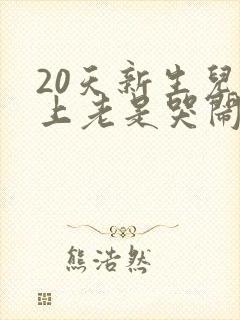 20天新生兒
上老是哭鬧
熊浩然